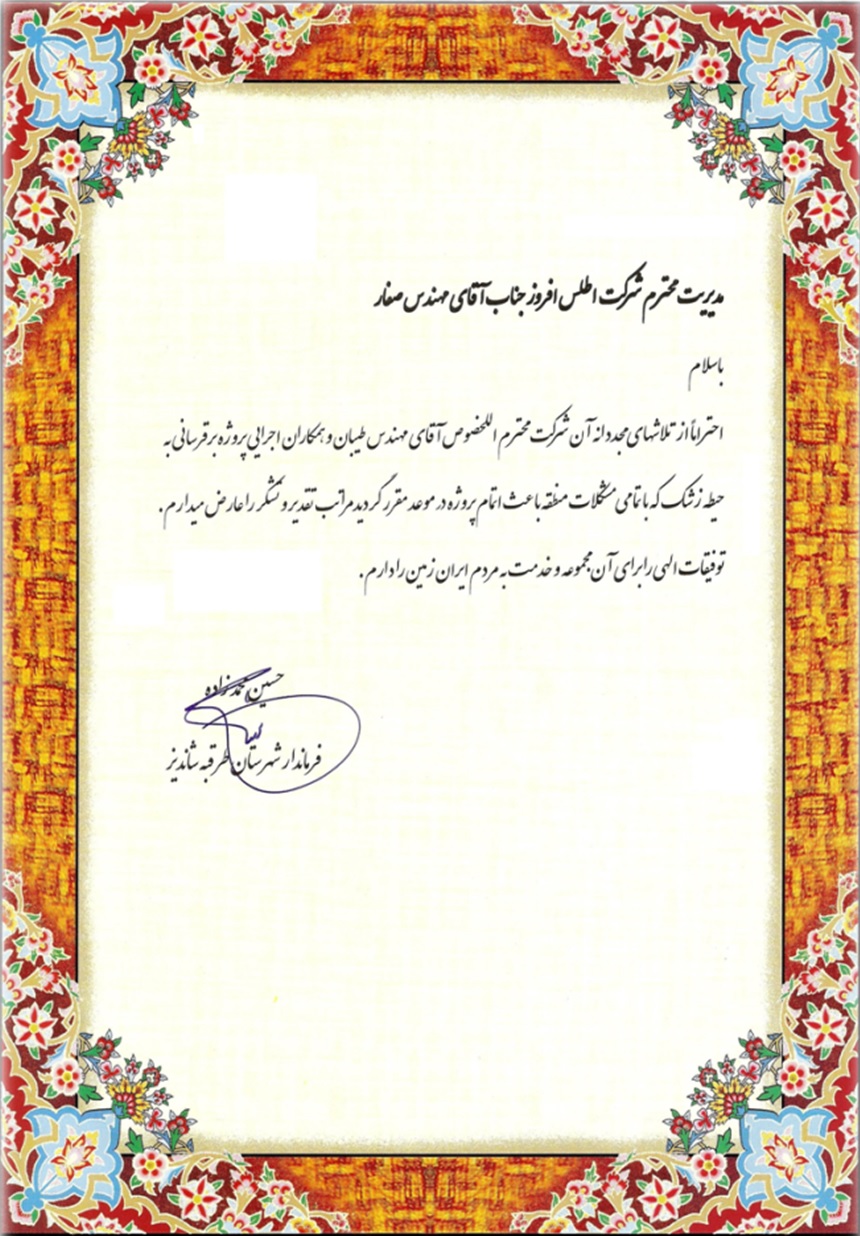 مدیریت محترم شرکت اطلس افروز جناب آقای مهندس صفار
باسلام
احتراماً از تلاشهای مجددانه آن شرکت محترم اللخصوص آقای مهندس طیبان و همکاران اجرایی پروژه برقرسانی به
حیطه زشک که با تمامی مشکلات منطقه باعث اتمام پروژه در موعد مقرر گردید مراتب تقدیر و تشکر را عارض میدارم.
توفیقات الهی را برای آن مجموعه و خدمت به مردم ایران زمین را دارم.
حسین محمدزاده
فرماندار شهرستان طرقبه شاندیز